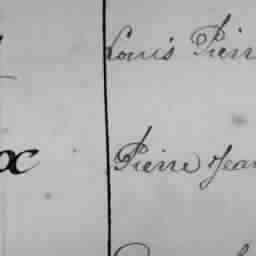 Louis Pierr
Pierre Jean